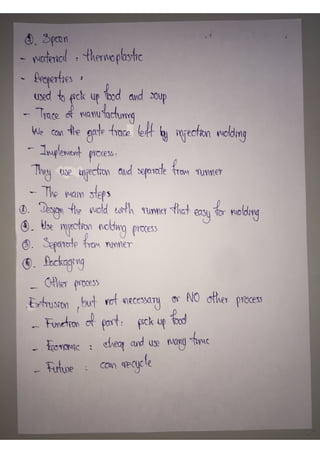 ①. Spoon
- Material : thermoplastic
- Properties :
used to pick up food and soup
- Trace of manufacturing
We can the gate trace left by injection molding
- Implement process.
They use injection and separate from runner
- The main steps
①. Design the mold with runner that easy for molding
②. Use injection molding process
③. Separate from runner
④. Packaging
- Other process
Extrusion, but not necessary or NO other process
- Function of part : pick up food
- Economic : cheap and use many time
- Future : can recycle